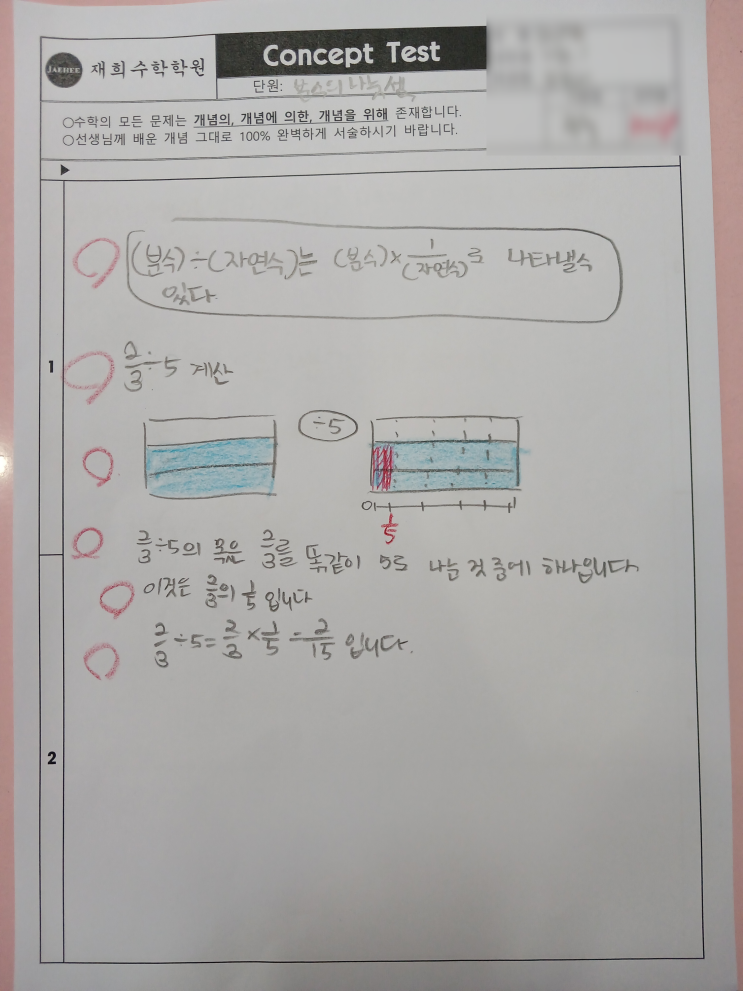 JAEHEE
재희수학학원
Concept Test
단원: 분수의 나눗셈
○수학의 모든 문제는 개념의, 개념에 의한, 개념을 위해 존재합니다.
○선생님께 배운 개념 그대로 100% 완벽하게 서술하시기 바랍니다.
▶
1
(분수)÷(자연수)는 (분수)×1/(자연수)로 나타낼수
있다.
2/3÷5 계산
÷5
0 1
1/5
2/3÷5의 몫은 2/3를 똑같이 5로 나눈 것 중에 하나입니다
이것은 2/3의 1/5 입니다
2/3÷5=2/3×1/5=2/15 입니다.
2